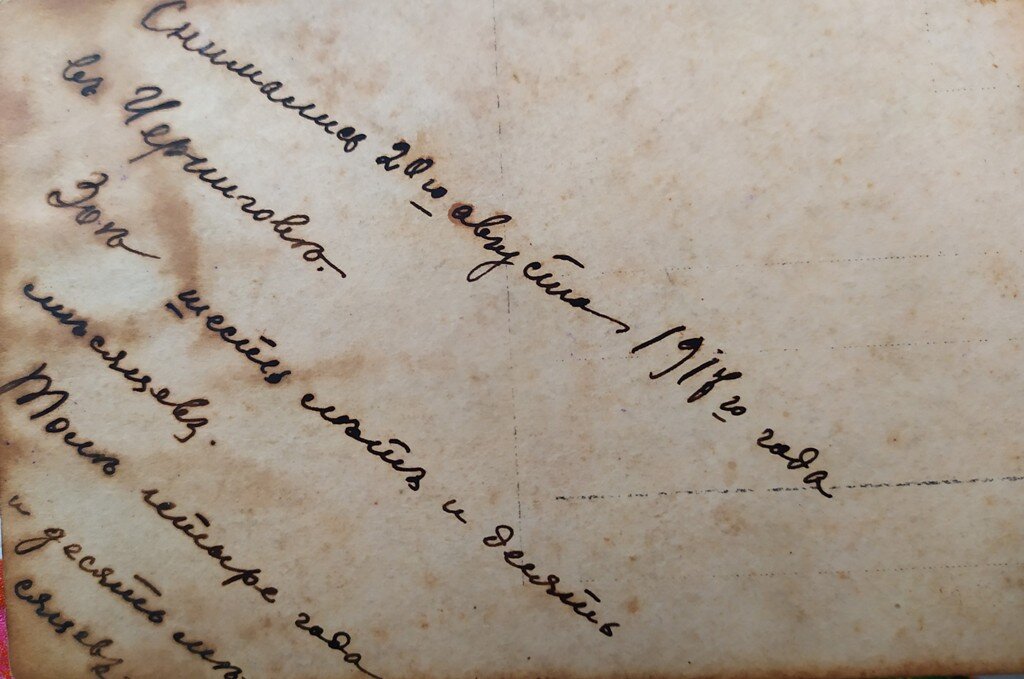 Снимались 20го августа 1918го года
въ Черниговѣ.
Зоѣ шесть лѣтъ и девять
мѣсяцевъ.
Толѣ четыре года
и десять мѣ
сяцевъ.